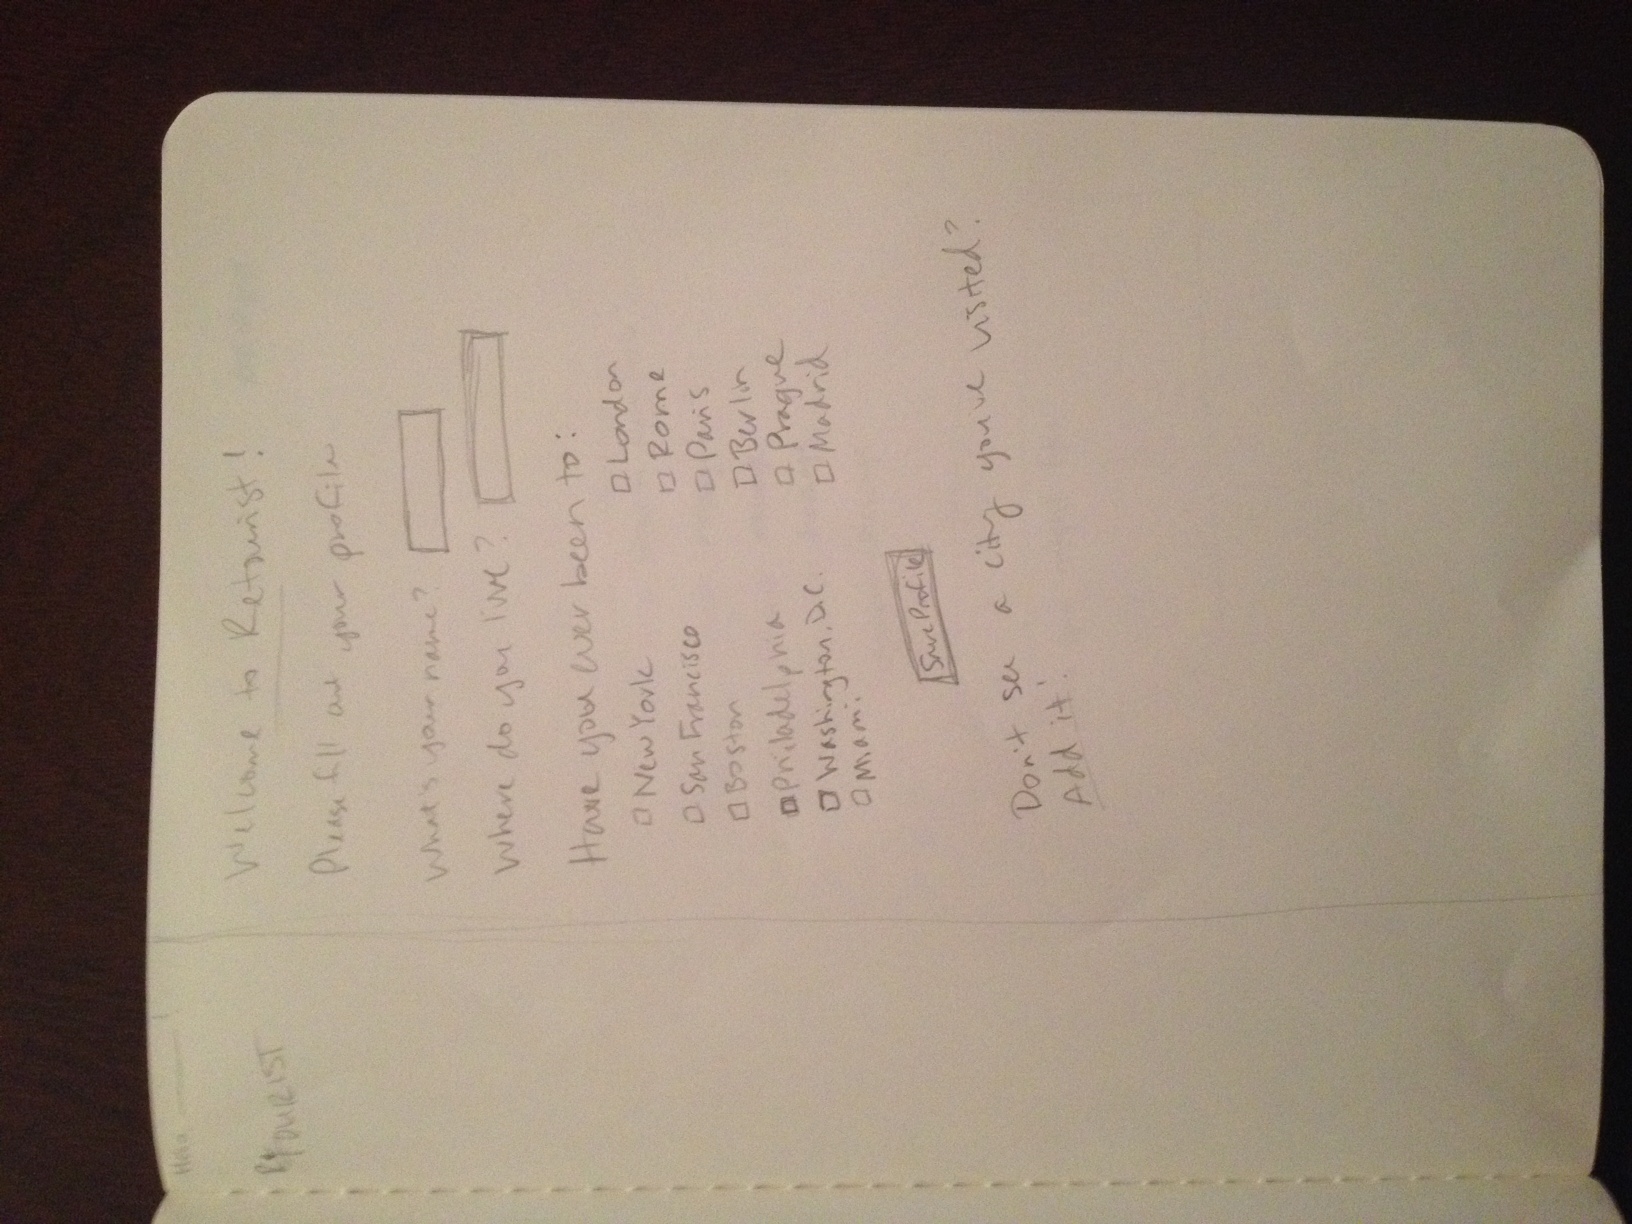 Hello
ReTOURIST
Welcome to Retourist!
Please fill out your profile
What's your name?
Where do you live?
Have you ever been to:
New York
San Francisco
Boston
Philadelphia
Washington, D.C.
Miami
London
Rome
Paris
Berlin
Prague
Madrid
Save Profile
Don't see a city you've visited?
Add it!